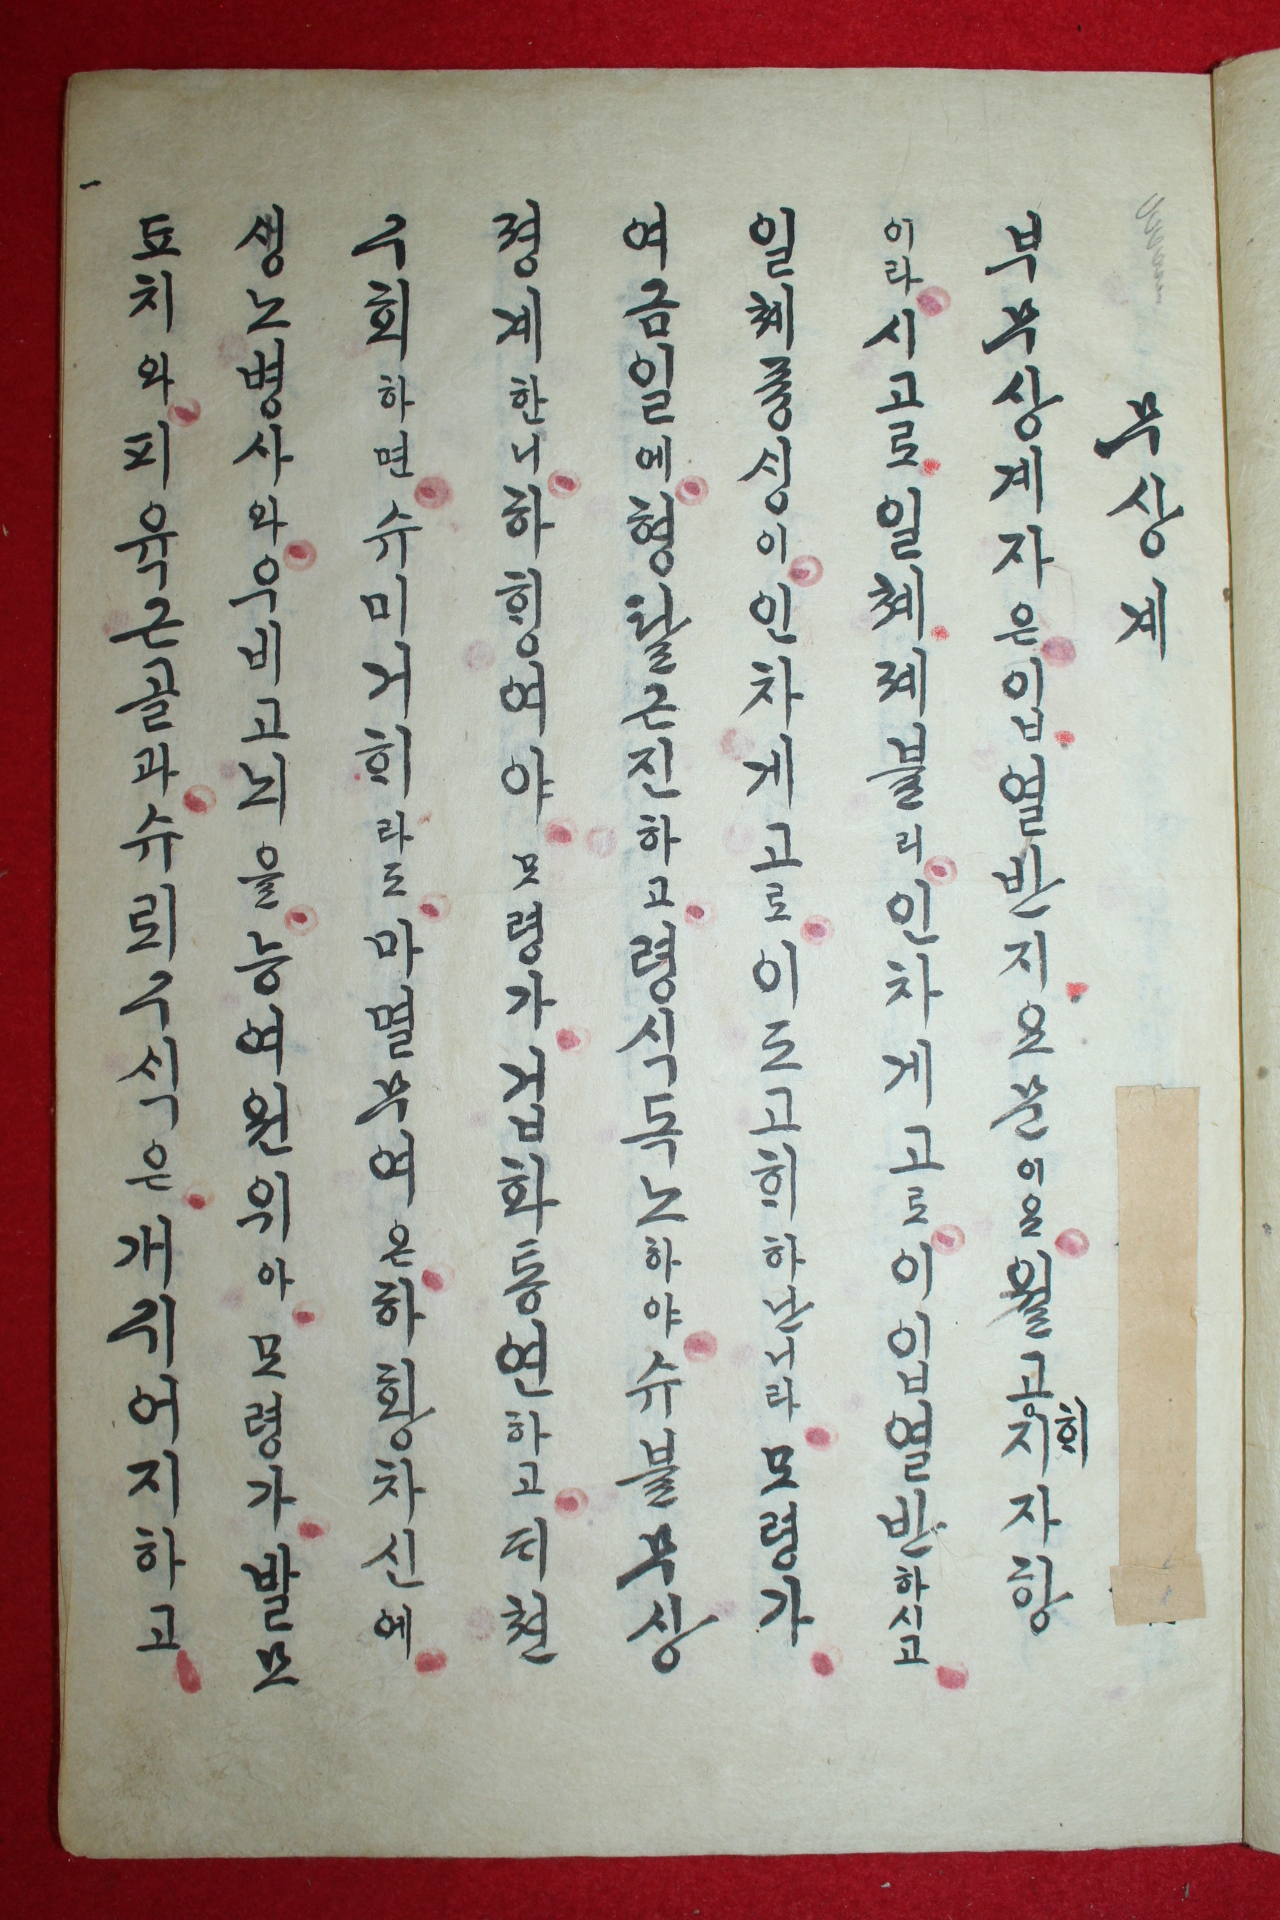 무상계
부무상계자은입열반지요문이요월고희지자항
이라시고로일쳬졔불리인차게고로이입열반하시고
일쳬즁싱이인차게고로이도고희하난니라모령가
여금일에형탈근진하고령식독노하야슈불무싱
졍계한니하힝여야모령가겁화통연하고되쳔
구회하면슈미거희라도마멸무여온하황차신에
생노병사와우비고뇌을능여원위아모령가발모
됴치와피육근골과슈뢰구식은개귀어지하고